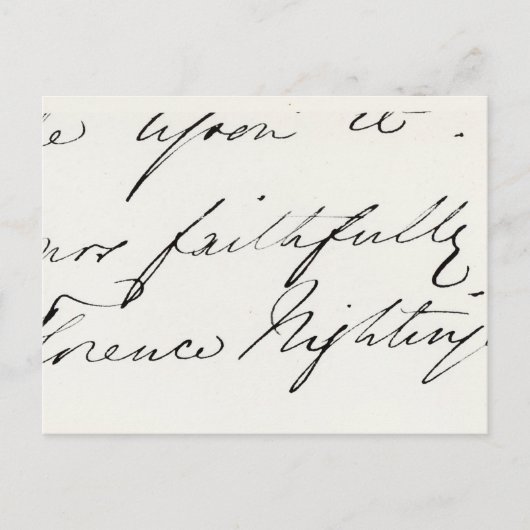 e upon it.
ours faithfully
lorence Nighting